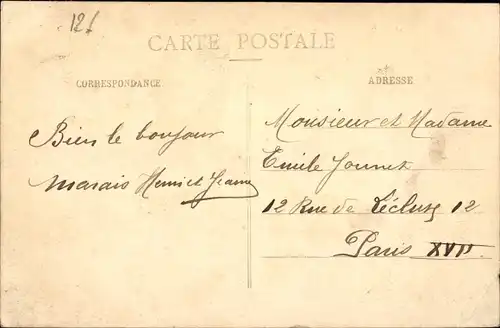 12f
CARTE POSTALE
CORRESPONDANCE
Bien le bonjour
Marais Henri et Jeanne
ADRESSE
Monsieur et Madame
Emile Jounet
12 Rue de Lécluse 12
Paris XVII